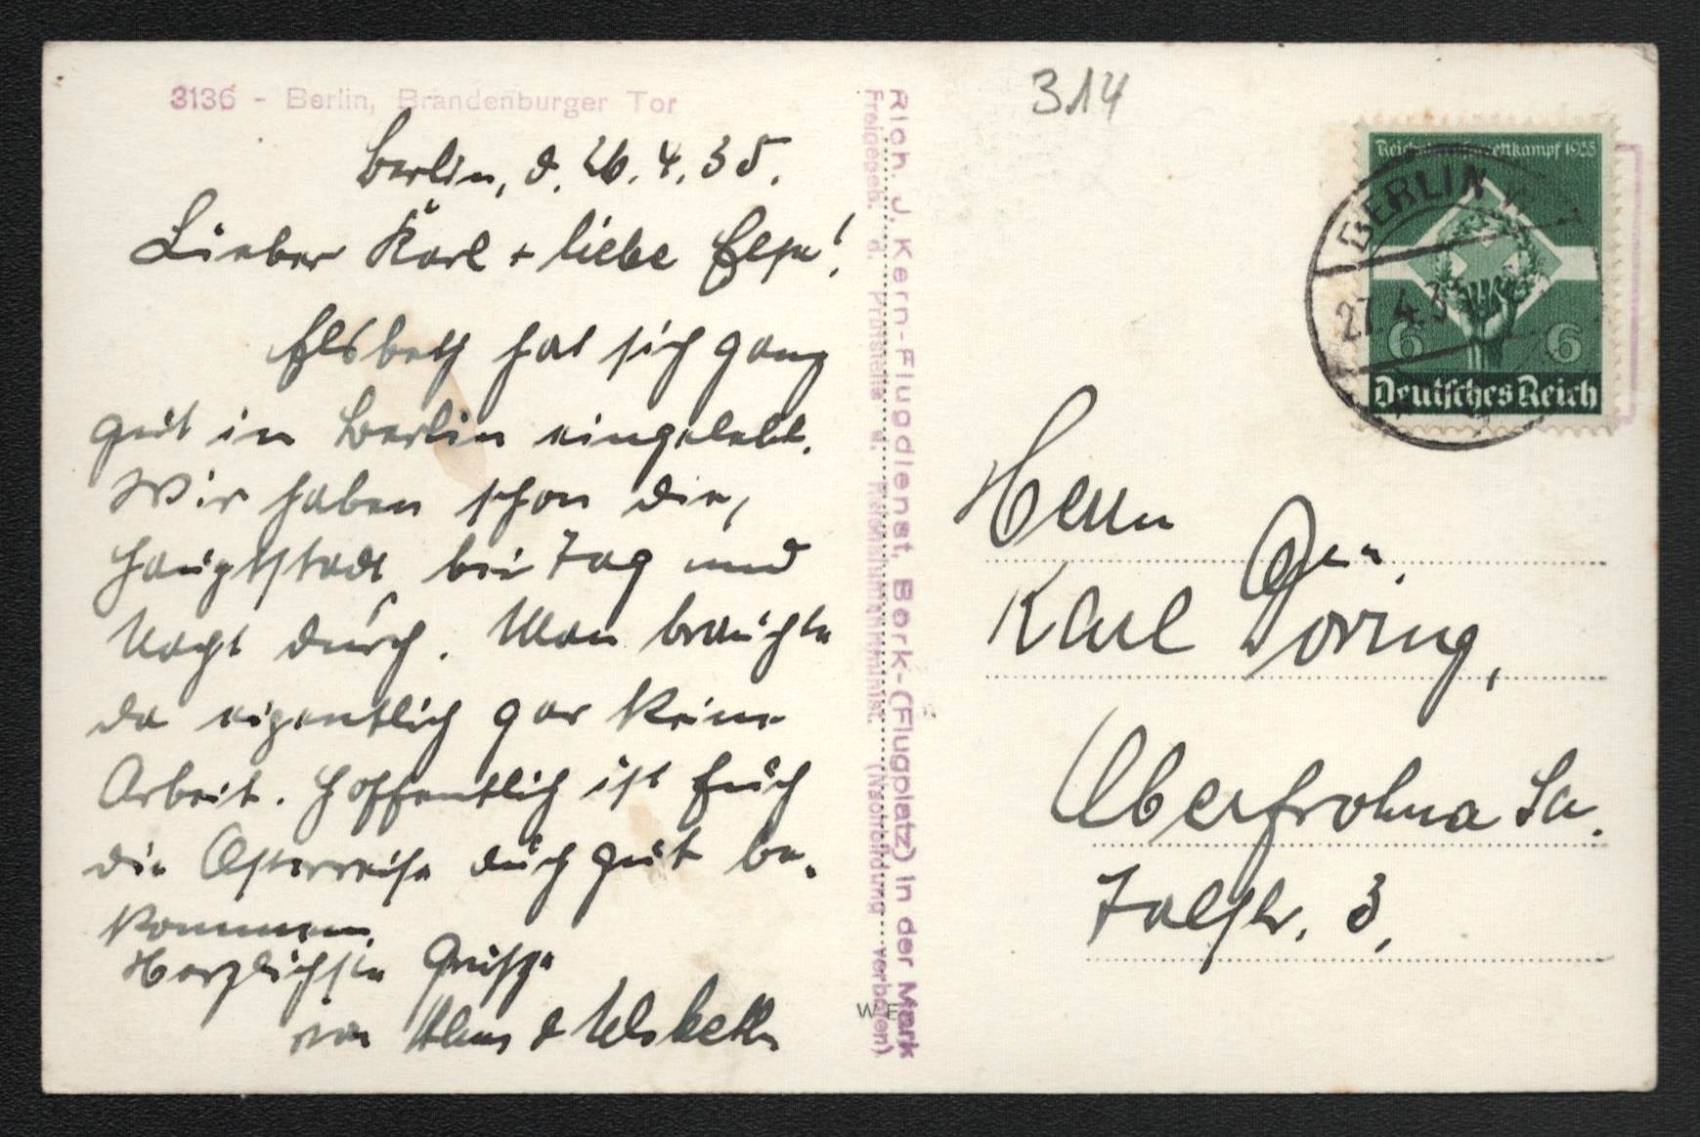 3136 - Berlin, Brandenburger Tor
Berlin, d. 26.4.35.
Lieber Karl + liebe Else!
Elsbeth hat sich ganz
gut in Berlin eingelebt.
Wir haben schon die,
Hauptstadt bei Tag und
Nacht durch. Man brauchte
da eigentlich gar keine
Arbeit. Hoffentlich ist Euch
die Osterreise auch gut be-
kommen.
Herzlichste Grüße
von Hans & Elsbeth
Rich. J. Kern-Flugdienst, Bork-(Flugplatz) in der Mark
Freigegeben. d. Prüfstelle d. (Nachbildung verboten)
W E
314
Reichs wettkampf 1935
6 6
Deutsches Reich
BERLIN
27.4.35
Herrn
Karl Döring,
Oberfrohna Sa.
Talstr. 3,